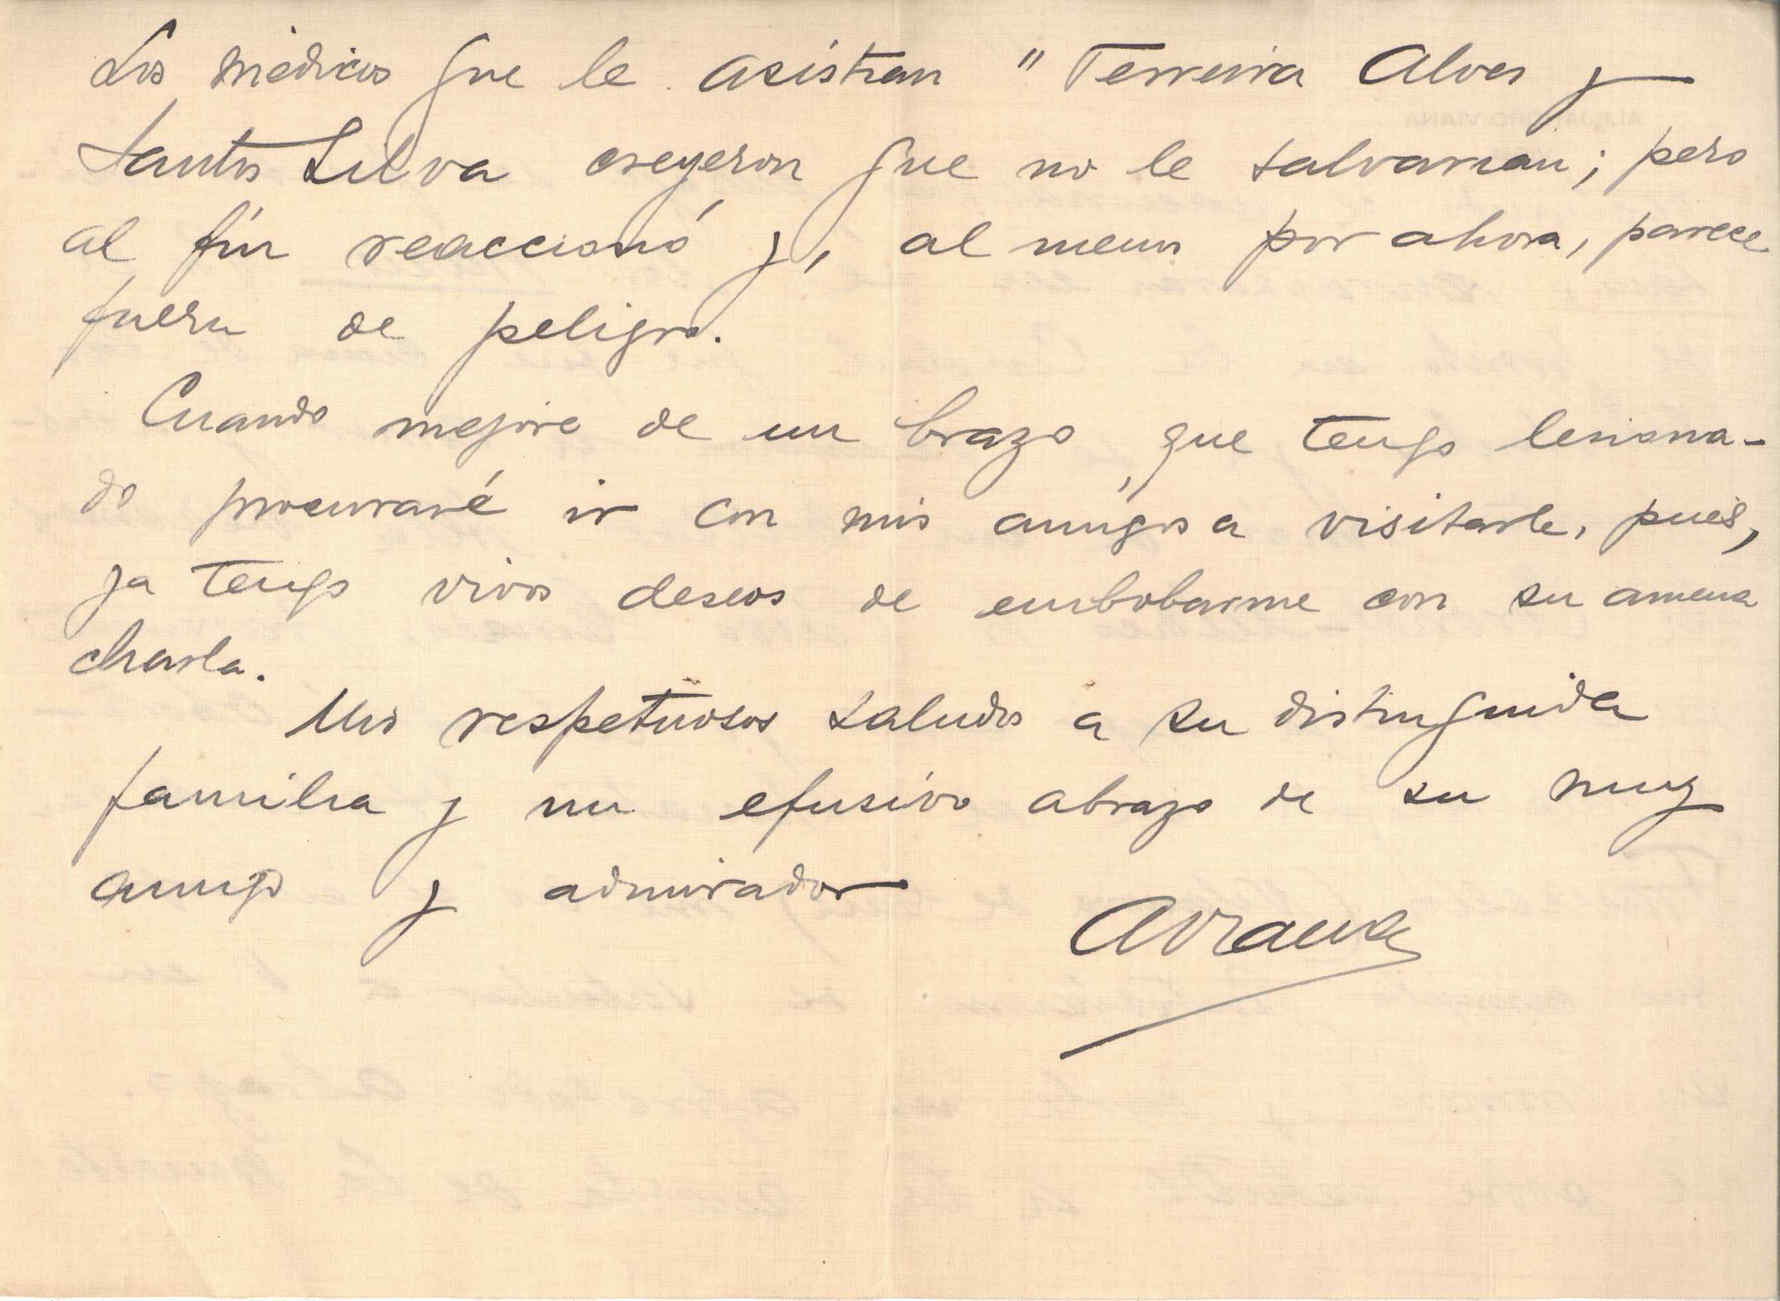 Los médicos que le asistian " Ferreira Alves y
Santos Silva creyeron que no le salvarian; pero
al fín reaccionó y, al menos por ahora, parece
fuera de peligro.
Cuando mejore de un brazo, que tengo lesiona-
do procuraré ir con mis amigos a visitarle, pues,
ya tengo vivos deseos de embobarme con su amena
charla.
Mis respetuosos saludos a su distinguida
familia y un efusivo abrazo de su muy
amigo y admirador